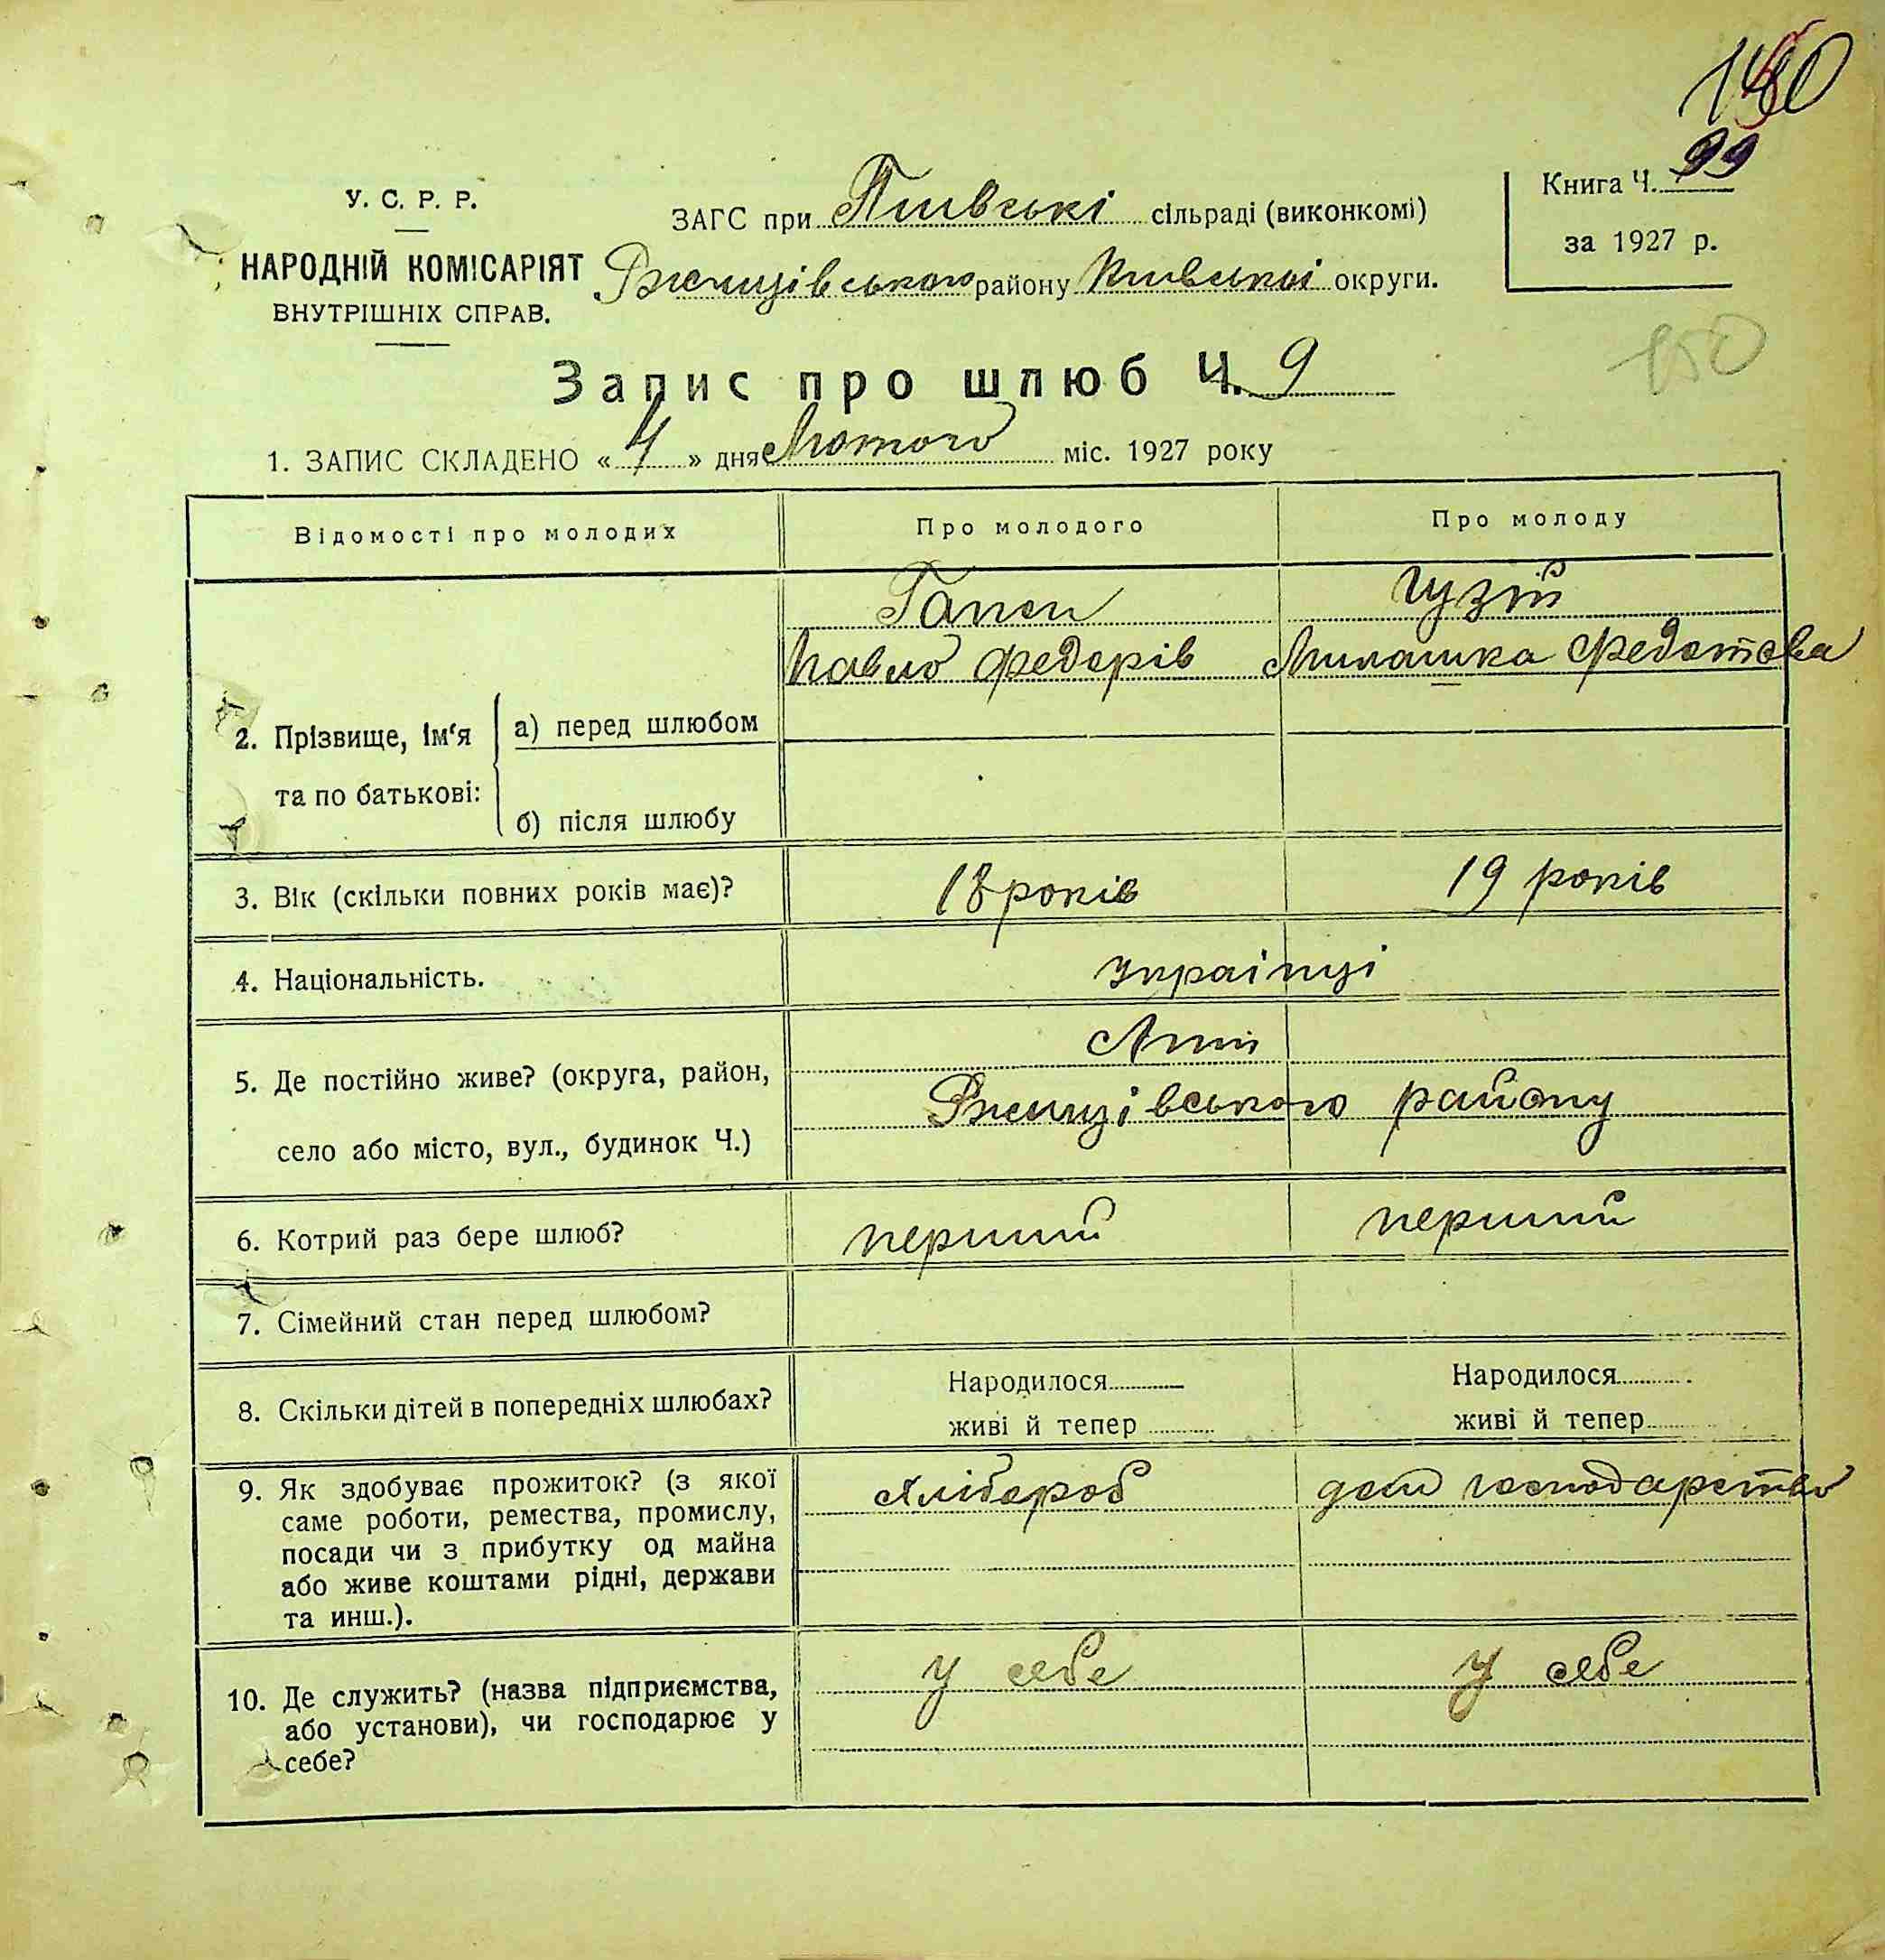 99
У. С. Р. Р.
НАРОДНІЙ КОМІСАРІЯТ
ВНУТРІШНІХ СПРАВ.
ЗАГС при сільраді (виконкомі)
Ржищівського району Київської округи.
Книга Ч. 99
за 1927 р.
150
Запис про шлюб Ч. 9
1. ЗАПИС СКЛАДЕНО « 4 » дня Лютого міс. 1927 року
Відомості про молодих
Про молодого
Про молоду
2. Прізвище, ім‘я та по батькові:
а) перед шлюбом
б) після шлюбу
Павло Федорів
Гузій
Милашка Федотова
3. Вік (скільки повних років має)?
18 років
19 років
4. Національність.
Українці
5. Де постійно живе? (округа, район,
село або місто, вул., будинок Ч.)
Ржищівського району
6. Котрий раз бере шлюб?
перший
перший
7. Сімейний стан перед шлюбом?
8. Скільки дітей в попередніх шлюбах?
Народилося
живі й тепер
Народилося
живі й тепер
9. Як здобуває прожиток? (з якої
саме роботи, ремества, промислу,
посади чи з прибутку од майна
або живе коштами рідні, держави
та инш.).
хлібороб
дом господарство
10. Де служить? (назва підприємства,
або установи), чи господарює у
себе?
у себе
у себе